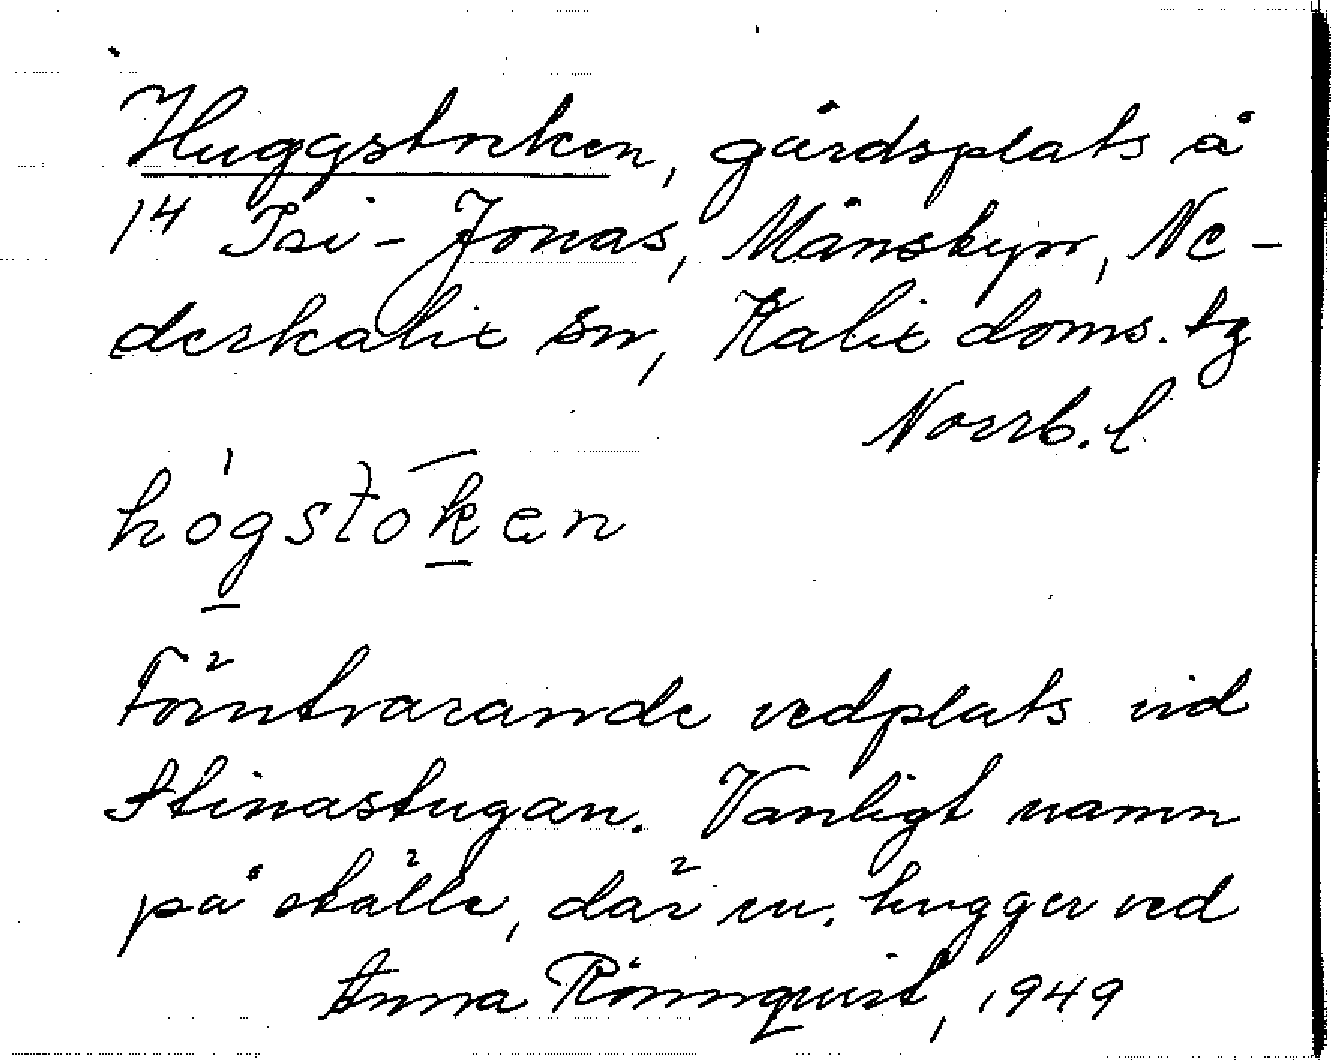 Huggstocken, gårdsplats å
14 Isi-Jonas, Månsbyn, Ne-
derkalix sn, Kalix doms. tg
Norrb. l.
hogstoken
Förutvarande vedplats vid
Stinastugan. Vanligt namn
på ställe, där en. hugger ved
Anna Rönnquist, 1949